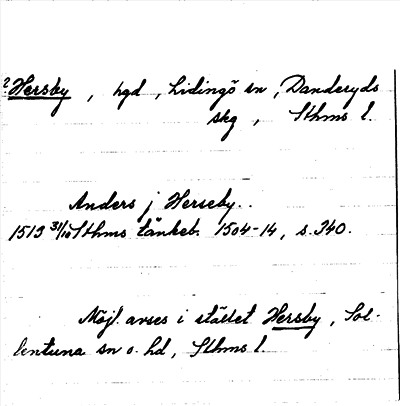 ? Hersby, hgd, Lidingö sn, Danderyds
skg, Sthms l.
Anders j Herseby.
1513 31/10 Sthms tänkeb. 1504-14, s. 340.
Möjl. avses i stället Hersby, Sol-
lentuna sn o. hd, Sthms l.